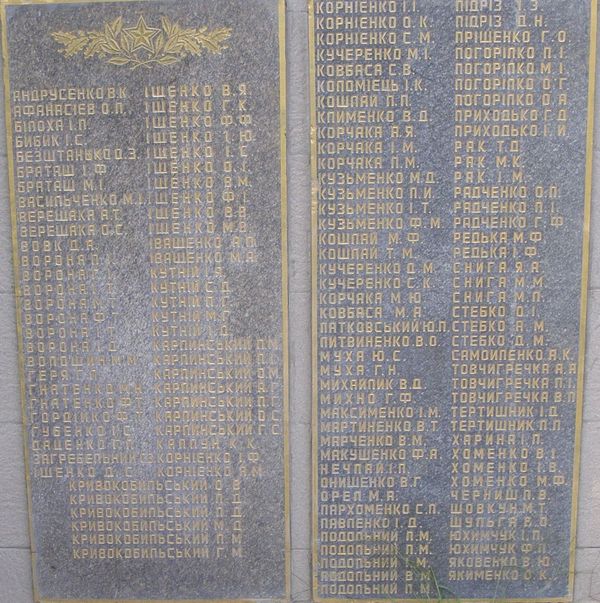 АНДРУСЕНКО В.К.
АФАНАСІЄВ О.П.
БІЛОХА І.П.
БИБИК І.С.
БЕЗШТАНЬКО О.З.
БРАТАШ І.Ф.
БРАТАШ М.І.
ВАСИЛЬЧЕНКО М.І.
ВЕРЕЩАКА А.Т.
ВЕРЕЩАКА О.С.
ВОВК Д.А.
ВОРОНА П.І.
ВОРОНА
ВОРОНА
ВОРОНА
ВОРОНА Ф.Т.
ВОРОНА
ВОРОНА
ВОЛОЩИН М.М.
ГЕРЯ
ГНАТЕНКО
ГНАТЕНКО Ф.Т.
ГОРДІЙКО Ф.Т.
ГУБЕНКО І.С.
ДАЦЕНКО Г.П.
ЗАГРЕБЕЛЬНИЙ
ІЩЕНКО Д.С.
ІЩЕНКО В.Я.
ІЩЕНКО Г.К.
ІЩЕНКО Ф.Ф.
ІЩЕНКО І.Ю.
ІЩЕНКО І.С.
ІЩЕНКО О.І.
ІЩЕНКО В.М.
ІЩЕНКО Ф.І.
ІЩЕНКО В.В.
ІЩЕНКО М.В.
ІВАЩЕНКО А.О.
ІВАЩЕНКО М.А.
КУТНІЙ І.Я.
КУТНІЙ С.Д.
КУТНІЙ П.Г.
КУТНІЙ М.Г.
КУТНІЙ І.Д.
КАРЛИНСЬКИЙ П.М.
КАРЛИНСЬКИЙ Г.І.
КАРЛИНСЬКИЙ П.М.
КАРЛИНСЬКИЙ А.Г.
КАРЛИНСЬКИЙ Г.С.
КАРЛИНСЬКИЙ О.С.
КАРЛИНСЬКИЙ Г.С.
КАПЛУН К.К.
КОРНІЄНКО І.Ф.
КОРНІЄНКО Я.М.
КРИВОКОБИЛЬСЬКИЙ О.В.
КРИВОКОБИЛЬСЬКИЙ Г.Д.
КРИВОКОБИЛЬСЬКИЙ П.Д.
КРИВОКОБИЛЬСЬКИЙ М.Д.
КРИВОКОБИЛЬСЬКИЙ П.Д.
КРИВОКОБИЛЬСЬКИЙ Г.М.
КОРНІЄНКО І.І.
КОРНІЄНКО О.К.
КОРНІЄНКО С.М.
КУЧЕРЕНКО М.І.
КОВБАСА С.В.
КОЛОМІЄЦЬ І.К.
КОШЛАЙ П.П.
КЛИМЕНКО В.Д.
КОРЧАКА А.Я.
КОРЧАКА І.М.
КОРЧАКА П.М.
КУЗЬМЕНКО М.Д.
КУЗЬМЕНКО П.И.
КУЗЬМЕНКО І.Т.
КУЗЬМЕНКО Ф.М.
КОШЛАЙ М.Ф.
КОШЛАЙ Т.М.
КУЧЕРЕНКО Д.М.
КУЧЕРЕНКО С.К.
КОРЧАКА М.Ю.
КОВБАСА М.А.
ЛАТКОВСЬКИЙ Ю.П.
ЛИТВИНЕНКО В.О.
МУХА Ю.С.
МУХА Г.Н.
МИХАЙЛИК В.Д.
МИХНО Г.Ф.
МАКСИМЕНКО І.М.
МАРТИНЕНКО В.Т.
МАРЧЕНКО В.М.
МАКУШЕНКО Ф.А.
НЕЧПАЙ І.П.
ОНИЩЕНКО В.Г.
ОРЕЛ М.А.
ПАРХОМЕНКО С.П.
ПАВЛЕНКО І.Д.
ПОДОЛЬНИЙ П.М.
ПОДОЛЬНИЙ П.М.
ПОДОЛЬНИЙ І.М.
ПОДОЛЬНИЙ В.М.
ПОДОЛЬНИЙ П.М.
ПІДРІЗ І.З.
ПІДРІЗ Д.Н.
ПРІЩЕНКО Г.О.
ПОГОРІЛКО П.І.
ПОГОРІЛКО М.І.
ПОГОРІЛКО О.Г.
ПОГОРІЛКО О.А.
ПРИХОДЬКО Г.Д.
ПРИХОДЬКО Г.И.
РАК Т.Д.
РАК М.К.
РАК І.М.
РАДЧЕНКО О.П.
РАДЧЕНКО П.І.
РАДЧЕНКО Г.Ф.
РЕДЬКА М.Ф.
РЕДЬКА І.Ф.
СНИГА Я.А.
СНИГА М.М.
СНИГА М.П.
СТЕБКО О.І.
СТЕБКО А.М.
СТЕБКО Д.М.
САМОЙЛЕНКО А.К.
ТОВЧИГРЕЧКА А.А.
ТОВЧИГРЕЧКА П.І.
ТОВЧИГРЕЧКА В.П.
ТЕРТИШНИК І.Д.
ТЕРТИШНИК П.П.
ХАРИНА І.П.
ХОМЕНКО В.І.
ХОМЕНКО І.В.
ХОМЕНКО М.Ф.
ЧЕРНИШ П.В.
ШОВКУН М.Т.
ШУЛЬГА В.О.
ЮХИМЧУК І.П.
ЮХИМЧУК Ф.П.
ЯКОВЕНКО В.Ю.
ЯКИМЕНКО О.К.